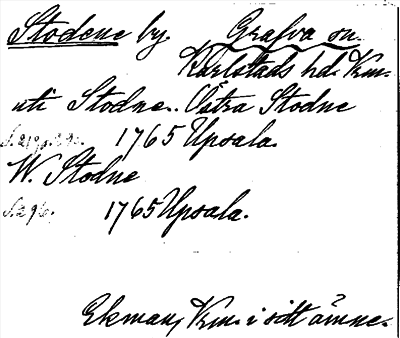 Stodene by. Grafva sn.
Karlstads hd. Krm.
uti Stodne.. Östra Stodne
1765 Upsala.
W. Stodne
S. 296. 1765 Upsala.
Ekman, Krm. i sitt ämne.